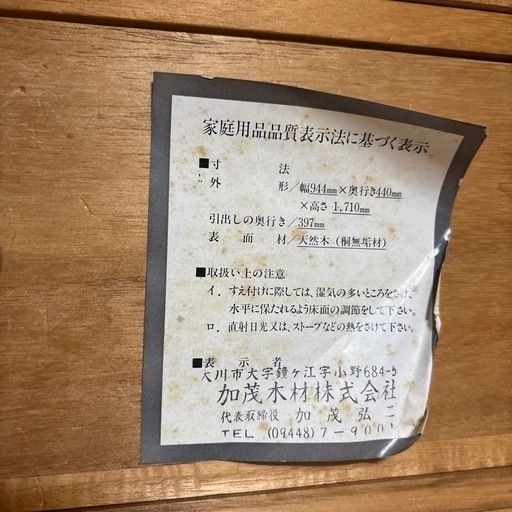 家庭用品品質表示法に基づく表示
■寸 法
外 形／幅944mm×奥行き440mm
×高さ 1,710mm
引出しの奥行き／397mm
表 面 材／天然木（桐無垢材）
■取扱い上の注意
イ．すえ付けに際しては、湿気の多いところをさけ、
水平に保たれるよう床面の調節をして下さい。
ロ．直射日光又は、ストーブなどの熱をさけて下さい。
■表 示 者
大川市大字鐘ヶ江字小野684-5
加茂木材株式会社
代表取締役 加茂弘二
TEL (09448) 7-9001